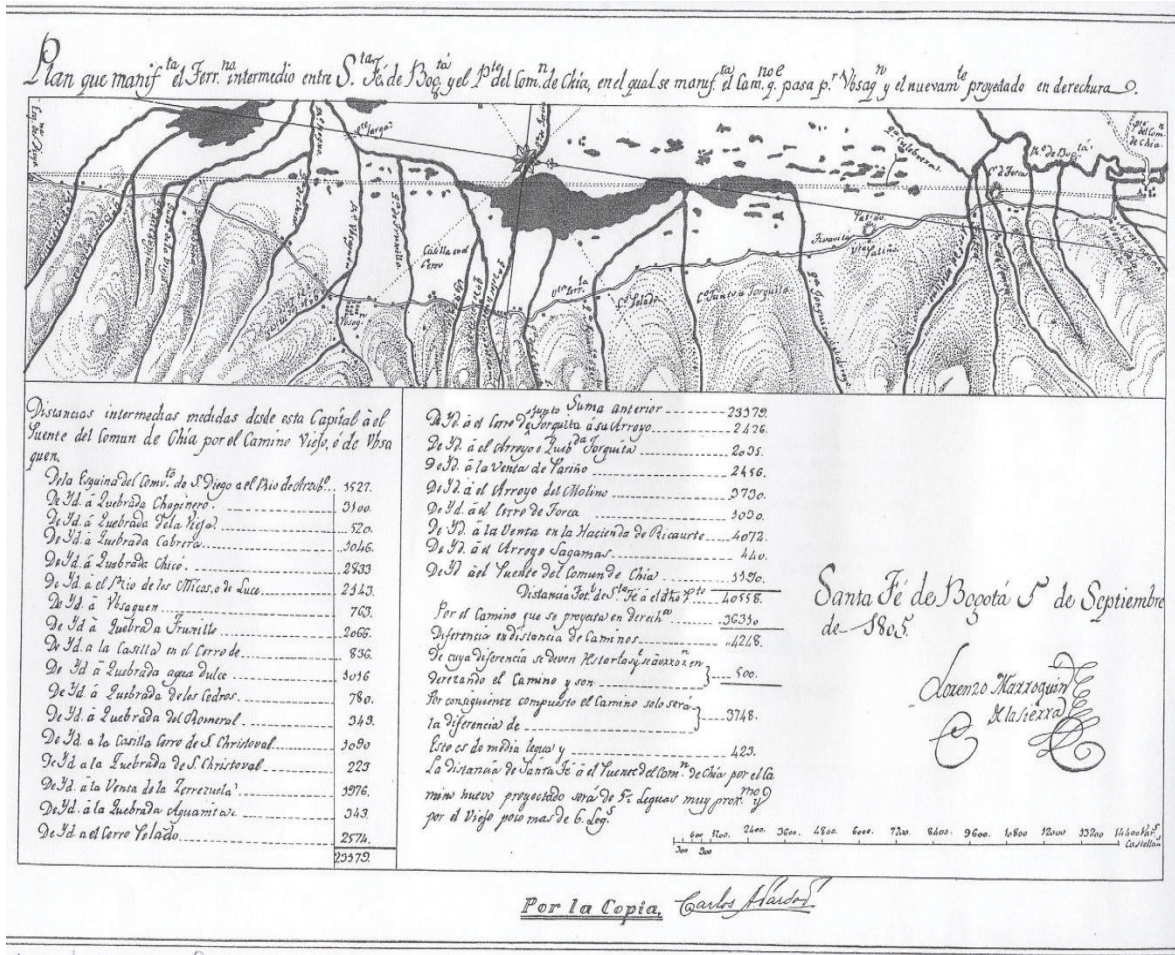 Plan que manif.ta el Terr.no intermedio entre S.ta Fé de Bog.tá y el P.te del Com.n de Chía, en el qual se manif.ta el Cam.no q.e pasa p.r Vbsaq.n y el nuevam.te proyectado en derechura
Distancias intermedias medidas desde esta Capital à el
Puente del Comun de Chía por el Camino Viejo, ò de Vbsa
quen.
De la Esquina del Conv.to de S. Diego a el Rio de Arzob.o 3527.
De Yd. à Quebrada Chapinero. 3100.
De Yd. à Quebrada Vieja 520.
De Yd. à Quebrada Cabrera 3046.
De Yd. à Quebrada Chico. 2833
De Yd. à el Rio de los Micos, o de Luce 2343.
De Yd. à Vbsaquen 763.
De Yd. à Quebrada Trunillo 2066.
De Yd. a la Casilla en el Cerro de 836.
De Yd. à Quebrada agua dulce 3016
De Yd. à Quebrada de los Cedros. 780.
De Yd. à Quebrada del Romeral 343.
De Yd. a la Casilla Cerro de S. Christoval 3090
De Yd. a la Quebrada de S. Christoval 223
De Yd. à la Venta de la Zerrezuela 3976.
De Yd. à la Quebrada Aguamitar. 343.
De Yd. a el Cerro Pelado 2574.
23379.
Suma anterior 23379.
De Yd. à el Cerro de junto Torquita à su Arroyo 2426.
De Yd. à el Arroyo ò Queb.da Torquita 2035.
De Yd. à la Venta de Patiño 2456.
De Yd. à el Arroyo del Molino 3730.
De Yd. à el Cerro de Torca 3030.
De Yd. à la Venta en la Hacienda de Ricaurte 4072.
De Yd. à el Arroyo Sagamas 440.
De Yd. à el Puente del Comun de Chía 3390.
Distancia Tot.l de S.ta Fé à el dho P.te 40558.
Por el Camino que se proyecta en derech.ra 36310
Diferencia en distancia de Caminos 4248.
De cuya diferencia se deven en
derezando el Camino y son 500.
Por consiguiente compuesto el Camino solo será
la diferencia de 3748.
Esto es de media legua y 423.
La distancia de Santa Fé à el Puente del Com.n de Chia por el Ca
mino nuevo proyectado será de 5. Leguas muy prox.mo y
por el Viejo poco mas de 6. Leg.s
Santa Fé de Bogotá 5 de Septiembre
de 1805.
Lorenzo Marroquin
de la Sierra
400 1200. 2400. 3600. 4800. 6000. 7200. 8400. 9600. 10800 12000 13200 14400 Var.s
300 900 Castellan.s
Por la Copia, Carlos A Pardo
Casilla en el
Cerro
Vbsaq.n
C.o Pelado
C.o Junto à Torquita
Patiño
C.o d Torca
R.o de Bog.tá
p.te del Com.
de Chia